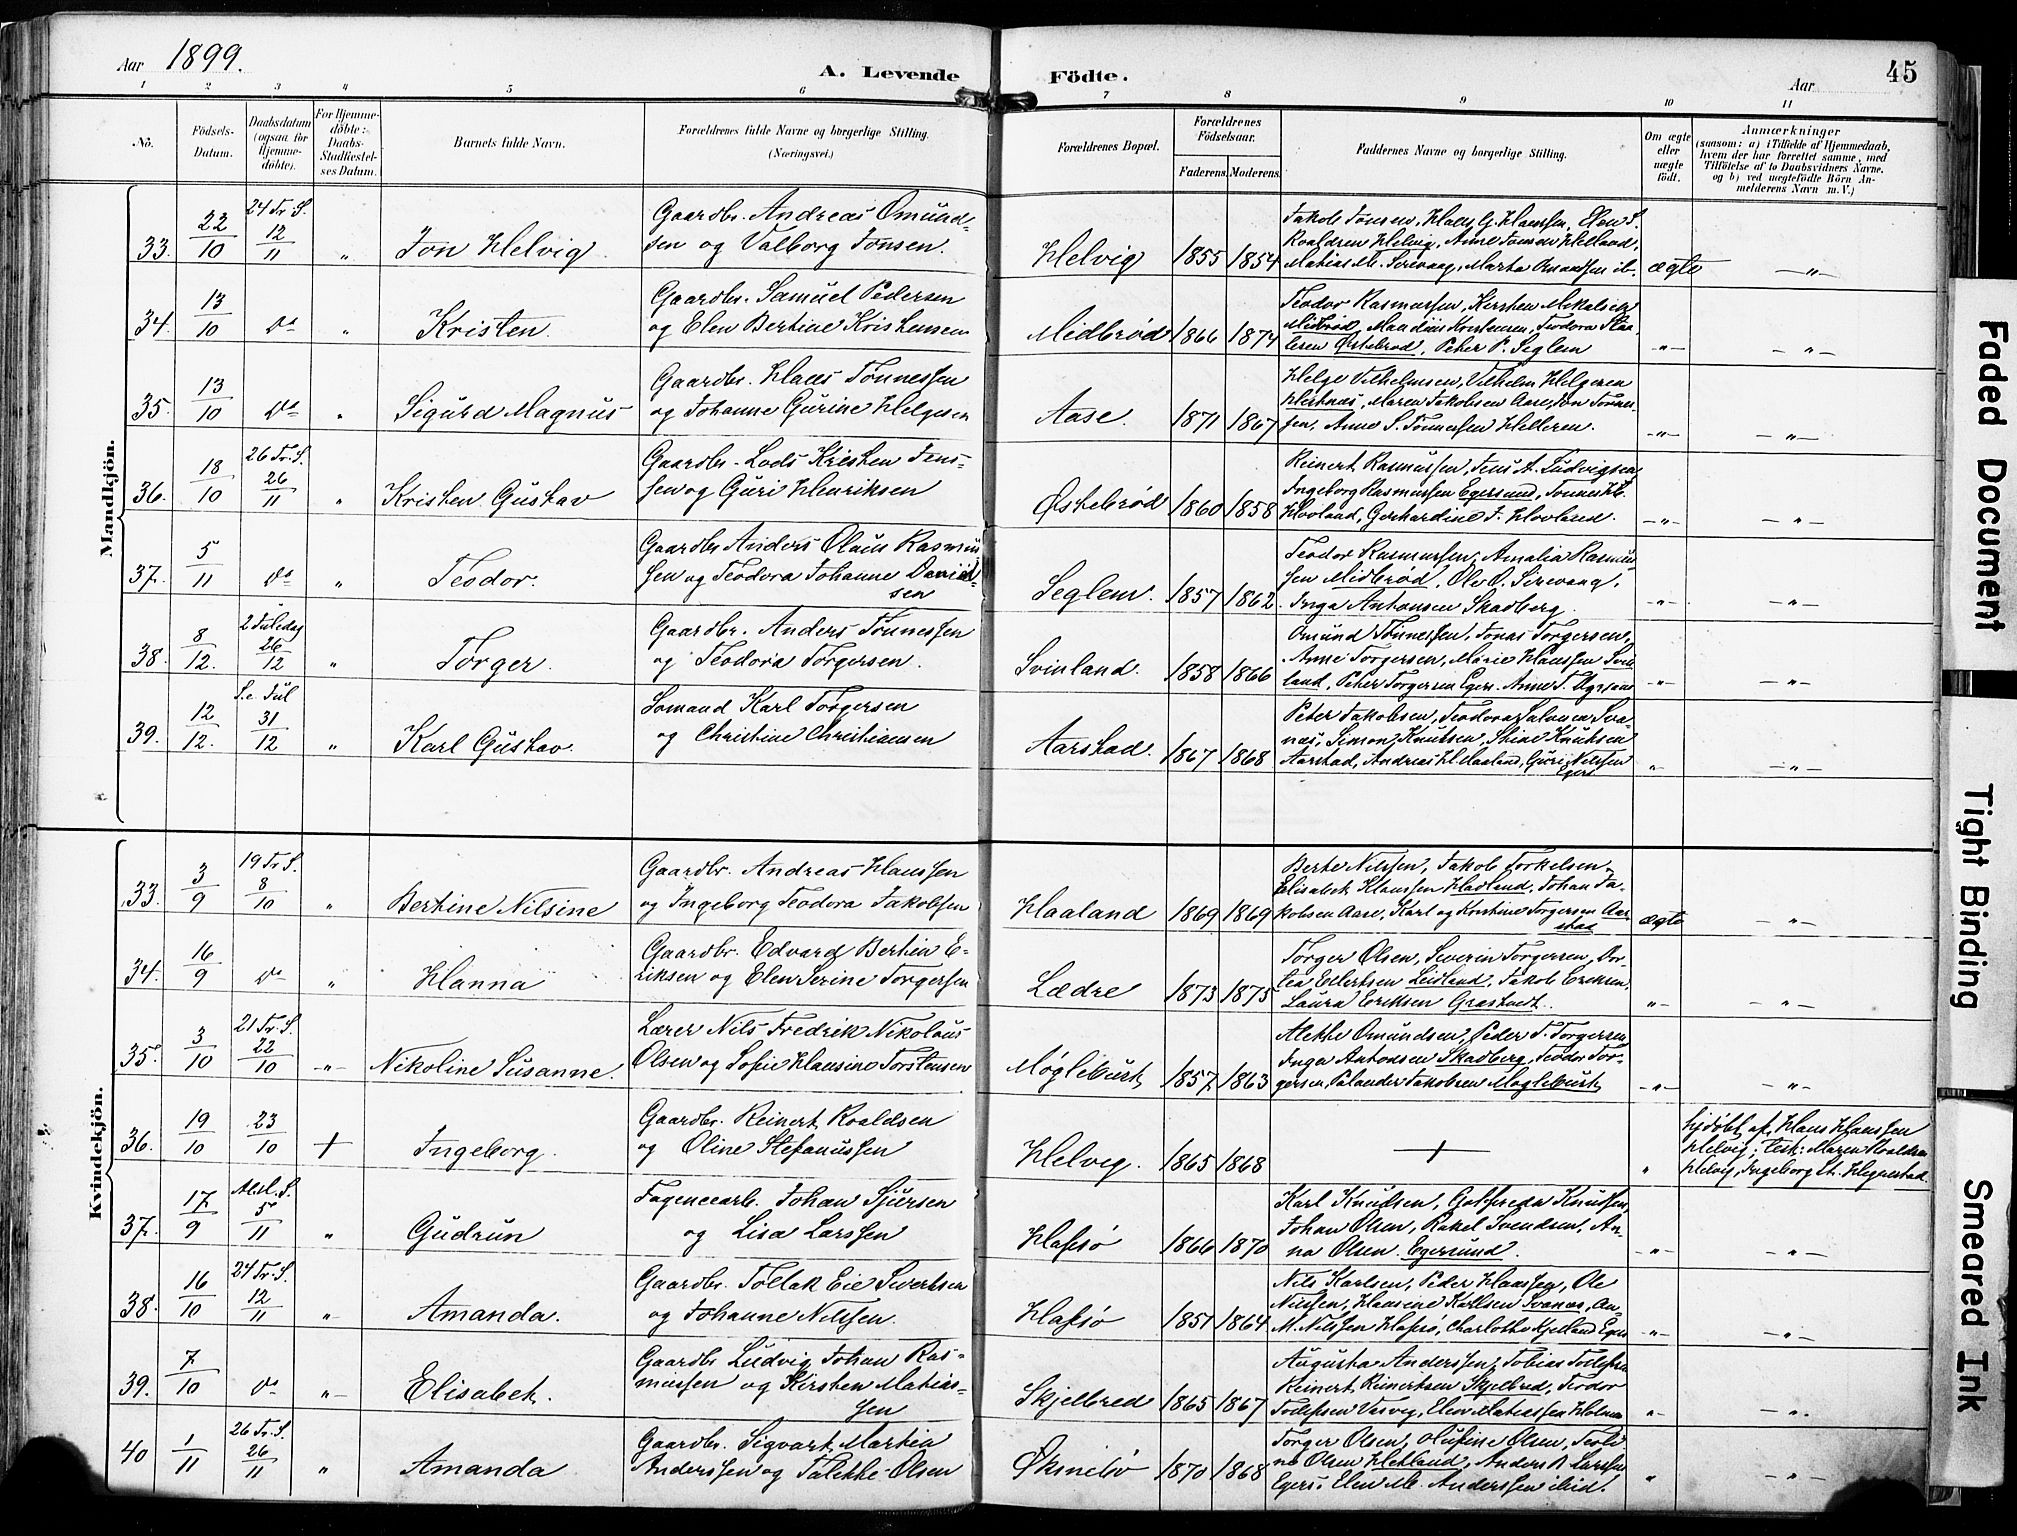 Aar 1899.
A. Levende Födte.
Aar
45
1 2 3 4 5 6 7 8 9 10 11
No.
Födsels-Datum.
Daabsdatum (ogsaa for Hjemme-döbte).
For Hjemme-döbte: Daabs-Stadfæstel-ses Datum.
Barnets fulde Navn.
Forældrenes fulde Navne og borgerlige Stilling.
(Næringsvei.)
Forældrenes Bopæl.
Forældrenes Födselsaar.
Faderens. Moderens.
Faddernes Navne og borgerlige Stilling.
Om ægte eller uægte födt.
Anmærkninger
(saasom: a) i Tilfælde af Hjemmedaab, hvem der har forrettet samme, med Tilföielse af to Daabsvidners Navne. og b) ved uægtefödte Börn An-melderens Navn m. V.)
Mandkjön.
33. 22/10 24 Tr. S. 12/11 „ Jon Helvig Gaardbr. Andreas Omund-
sen og Valborg Jonsen. Helvig 1855 1854 ægte — „ —
Jakob Jonsen, Klaus G. Klaussen, Elen S.
Roaldsen Helvig, Anne Jonsen Helland,
Matias M. Sirevaag, Marta Omundsen ib.
34. 13/10 do „ Kristen. Gaardbr. Samuel Pedersen
og Elen Bertine Kristensen Midbrød 1866 1874 — „ —
Teodor Rasmussen, Kirsten Mikalsen
Midbrød, Kristensen, Teodora
Østebrød, Peter P. Seglem
35. 13/10 do „ Sigurd Magnus Gaardbr. Klaus Tønnessen
og Johanne Gurine Helgesen Aase. 1871 1867 — „ —
Helge Vilhelmsen, Vilhelm Helgesen
Hestnæs, Maren Jakobsen Aase, Jon Tønnes-
sen, Anne S. Tønnessen Helleren.
36. 18/10 26 Tr. S. 26/11 „ Kristen Gustav Gaardbr. Lods Kristen Jens-
sen og Guri Henriksen Østebrød 1860 1858 — „ —
Reinert Rasmussen, Jens A. Ludvigsen
Ingeborg Rasmussen Egersund, Tønnes H.
Hovland, Gerhardine J. Hovland.
37. 5/11 do „ Teodor. Gaardbr. Anders Olaus Rasmus-
sen og Teodora Johanne David-
sen Seglem. 1857 1862 — „ —
Teodor Rasmussen, Amalia Rasmus-
sen Midbrød, Ole O. Sirevaag,
Inga Antonsen Skadberg.
38. 8/12. 2 Juledag 26/12 „ Torger. Gaardbr. Anders Tønnessen
og Teodora Torgersen. Svinland. 1858 1866 — „ —
Omund Tønnessen, Jonas Torgersen,
Anne Torgersen, Marie Klaussen Svin-
land, Peter Torgersen Egers. Anne T.
39. 12/12. S. e. Jul 31/12 „ Karl Gustav. Sømand Karl Torgersen
og Christine Christiansen Aarstad. 1867 1868 — „ —
Peter Jakobsen, Teodora Salvesen Sva-
næs, Simon Knutsen, Stine Knutsen
Aarstad, Andreas H. Haaland, Guri Nilssen
Egers
Kvindekjön.
33. 3/9 19 Tr. S. 8/10 „ Bertine Nilsine Gaardbr. Andreas Klaussen
og Ingeborg Teodora Jakobsen Haaland 1869 1869 ægte — „ —
Berte Nilssen, Jakob Torkelsen
Elisabet Klaussen Haaland, Johan Ja-
kobsen Aase, Karl og Kristine Torgersen Aar-
stad
34. 16/9 do „ Hanna Gaardbr. Edvard Bertin E-
riksen og Elen Serine Torgersen Lædre 1873 1875 „ — „ —
Torger Olsen, Severin Torgersen, Dor-
tea Eilertsen Leidland, Jakob Eriksen,
Laura Eriksen Grastvedt.
35. 3/10 21 Tr. S. 22/10 – „ – Nikoline Susanne. Lærer Nils Fredrik Nikolaus
Olsen og Sofie Klausine Torstensen Møgleburt 1857 1863 — „ —
Alette Omundsen, Peder T. Torgersen
Inga Antonsen Skadberg, Teodor Tor-
gersen, Palander Jakobsen Møgleburt
36. 19/10 23/10 + Ingeborg. Gaardbr. Reinert Roaldsen
og Oline Stefanussen Helvig. 1865 1868 + „
hjdöbt af Klaus Klaussen
Helvig; test: Maren Roaldsen
Helvig, Ingeborg St. Hegrestad.
37. 17/9 5/11 „ Gudrun Fagencearb. Johan Sjursen
og Lisa Larssen Hafsø 1866 1870 — „ —
Karl Knudsen, Gotfreda Knutsen,
Johan Olsen, Rakel Svendsen, An-
na Olsen. Egersund.
38. 16/10 24 Tr. S. 12/11 „ Amanda. Gaardbr. Tollak Eie Sivertsen
og Johanne Nilssen. Hafsø 1851 1864 — „ —
Nils Karlsen, Peder Ole
Nilssen, Hansine Karlsen Svanæs, An.
M. Nilssen Hafsø, Charlotte Kjelland Egers
39. 7/10 do „ Elisabet. Gaardbr. Ludvig Johan Ras-
mussen og Kirsten Matias-
sen Skjelbred 1865 1867 „ — „ —
Augusta Anderssen, Tobias
Reinert Reinertsen Skjelbred, Teodor
Vasvig, Elen Matiassen
40 1/11 26 Tr. S. 26/11 „ Amanda Gaardbr. Sigvart Martin
Anderssen og Talette Olsen Øksnebø 1870 1868 „ — „ —
Torger Olsen, Olufine Olsen,
Olsen Hetland, Anders B. Larssen
Egers, Elen M. Anderssen ibid.
Faded Document
Tight Binding
Smeared Ink